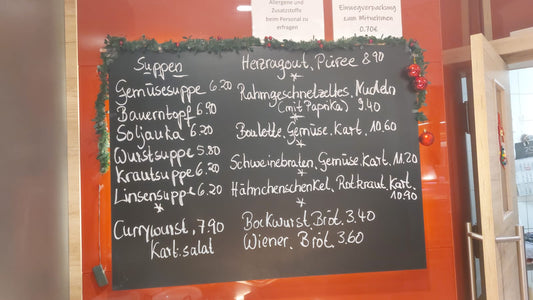 Allergene und
Zusatzstoffe
beim Personal zu
erfragen
Einwegverpackung
zum Mitnehmen
0,70€
Suppen
Gemüsesuppe 6.20
Bauerntopf 6.90
Soljanka 6.20
Wurstsuppe 5.80
Krautsuppe 6.20
Linsensuppe 6.20
*
Currywurst, 7.90
Kart.salat
Herzragout, Püree 8.90
*
Rahmgeschnetzeltes, Nudeln
(mit Paprika) 9.40
*
Boulette, Gemüse. Kart. 10,60
*
Schweinebraten, Gemüse. Kart. 11.20
*
Hähnchenschenkel, Rotkraut, Kart.
10.90
*
Bockwurst, Bröt. 3.40
Wiener, Bröt. 3.60